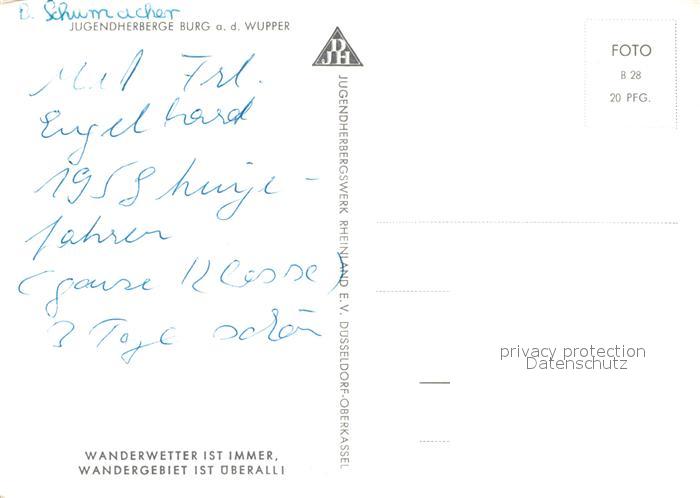 D. Schumacher
JUGENDHERBERGE BURG a. d. WUPPER
Mit Frl.
Engelhard
1958 hinge-
fahren
(ganze Klasse)
3 Tage schön
WANDERWETTER IST IMMER,
WANDERGEBIET IST ÜBERALL!
DJH
JUGENDHERBERGSWERK RHEINLAND E.V. DÜSSELDORF-OBERKASSEL
FOTO
B 28
20 PFG.
privacy protection
Datenschutz